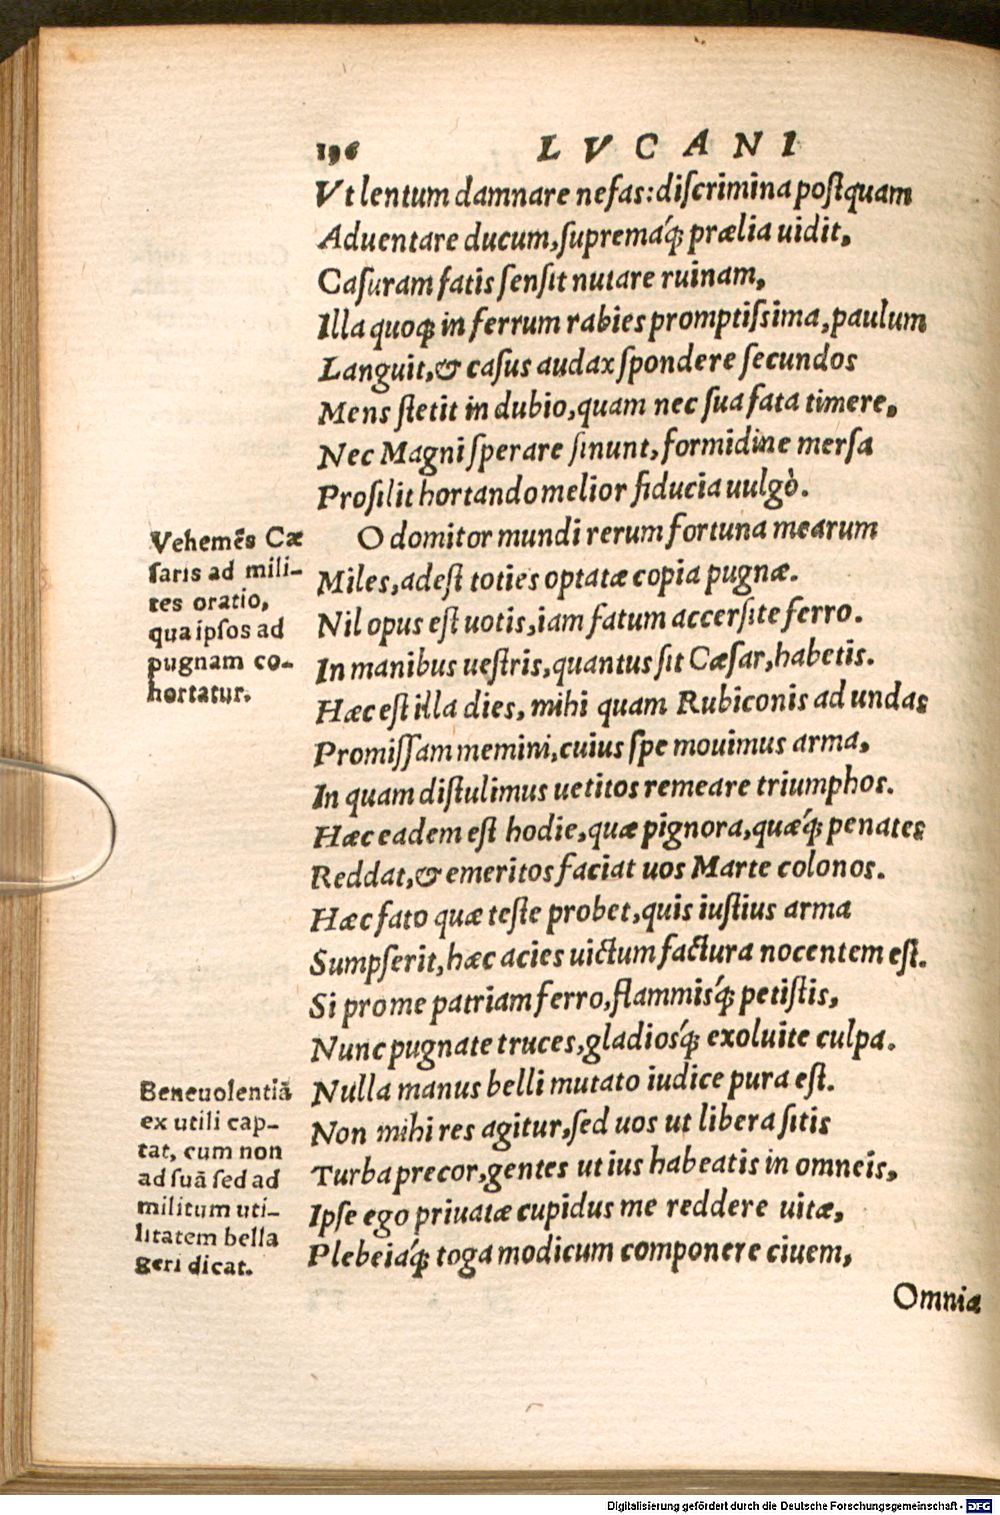 196 LVCANI
Vt lentum damnare nefas: discrimina postquam
Aduentare ducum, supremáq; prælia uidit,
Casuram fatis sensit nutare ruinam,
Illa quoq; in ferrum rabies promptissima, paulum
Languit, & casus audax spondere secundos
Mens stetit in dubio, quam nec sua fata timere,
Nec Magni sperare sinunt, formidine mersa
Prosilit hortando melior fiducia uulgò.
O domitor mundi rerum fortuna mearum
Miles, adest toties optatæ copia pugnæ.
Nil opus est uotis, iam fatum accersite ferro.
In manibus uestris, quantus sit Cæsar, habetis.
Hæc est illa dies, mihi quam Rubiconis ad undas
Promissam memini, cuius spe mouimus arma,
In quam distulimus uetitos remeare triumphos.
Hæc eadem est hodie, quæ pignora, quæq́; penates
Reddat, & emeritos faciat uos Marte colonos.
Hæc fato quæ teste probet, quis iustius arma
Sumpserit, hæc acies uictum factura nocentem est.
Si pro me patriam ferro, flammisq́; petistis,
Nunc pugnate truces, gladiosq́; exoluite culpa.
Nulla manus belli mutato iudice pura est.
Non mihi res agitur, sed uos ut libera sitis
Turba precor, gentes ut ius habeatis in omneis,
Ipse ego priuatæ cupidus me reddere uitæ,
Plebeiáq; toga modicum componere ciuem,
Omnia
Vehemẽs Cæ
saris ad mili-
tes oratio,
qua ipsos ad
pugnam co-
hortatur.
Beneuolentiã
ex utili cap-
tat, cum non
ad suã sed ad
militum uti-
litatem bella
geri dicat.
Digitalisierung gefördert durch die Deutsche Forschungsgemeinschaft - DFG